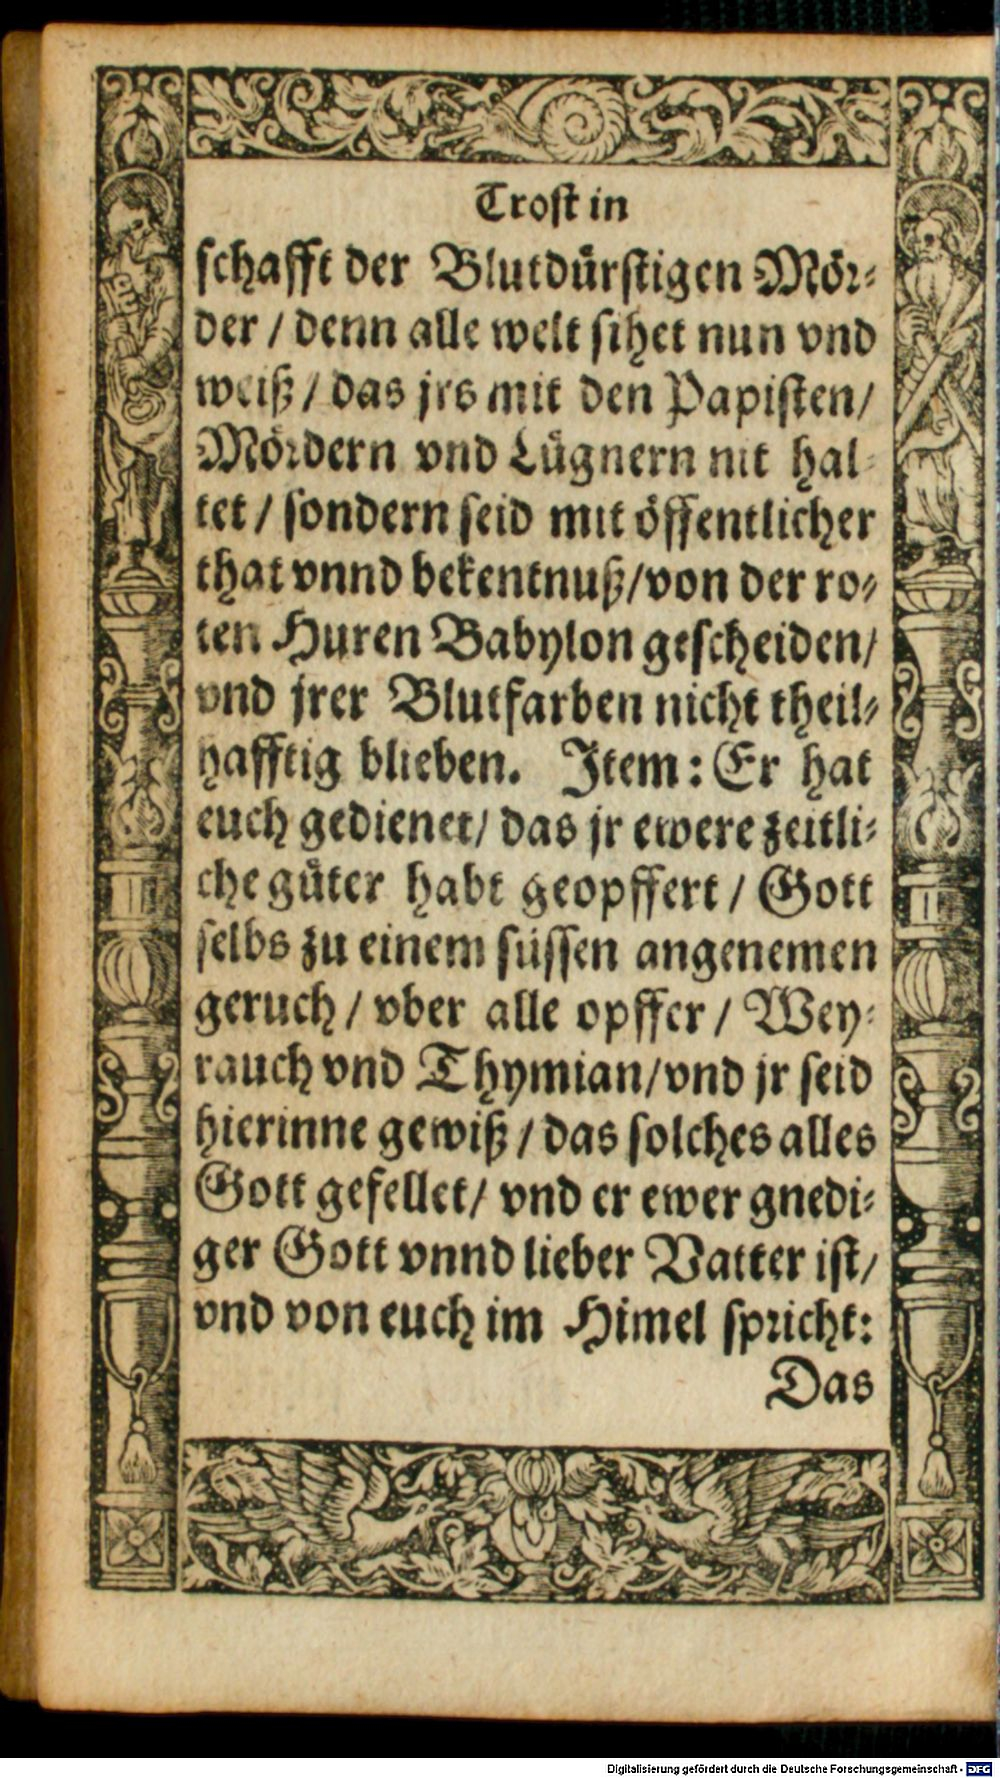 Trost in
schafft der Blutdürstigen Mör-
der / denn alle welt sihet nun vnd
weiß / das jrs mit den Papisten /
Mördern vnd Lügnern nit hal-
tet / sondern seid mit öffentlicher
that vnnd bekentnuß / von der ro-
ten Huren Babylon gescheiden /
vnd jrer Blutfarben nicht theil-
hafftig blieben. Item : Er hat
euch gedienet / das jr ewere zeitli-
che güter habt geopffert / Gott
selbs zu einem süssen angenemen
geruch / vber alle opffer / Wey-
rauch vnd Thymian / vnd jr seid
hierinne gewiß / das solches alles
Gott gefellet / vnd er ewer gnedi-
ger Gott vnnd lieber Vatter ist /
vnd von euch im Himel spricht :
Das
Digitalisierung gefördert durch die Deutsche Forschungsgemeinschaft - DFG